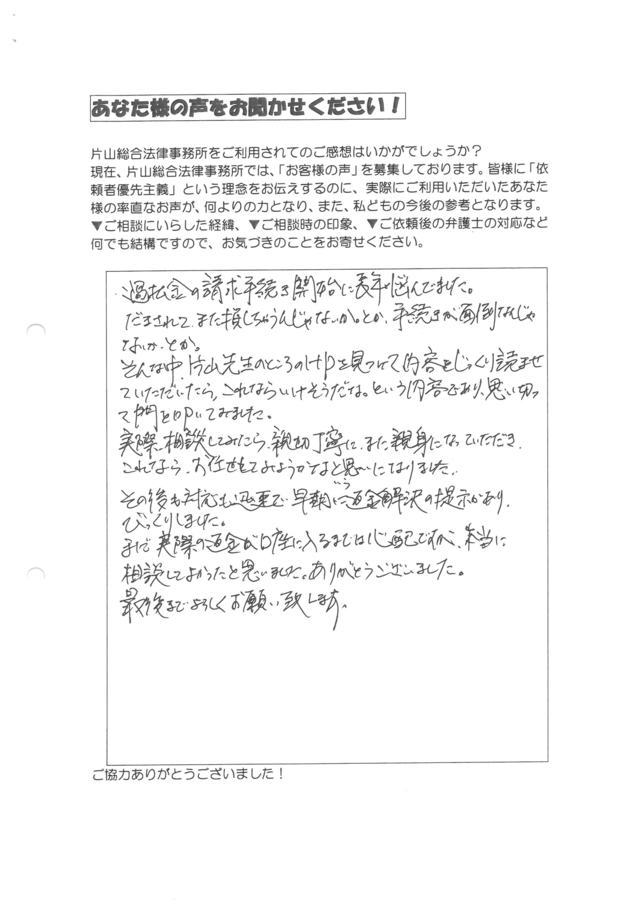 あなた様の声をお聞かせください！
片山総合法律事務所をご利用されてのご感想はいかがでしょうか？
現在、片山総合法律事務所では、「お客様の声」を募集しております。皆様に「依
頼者優先主義」という理念をお伝えするのに、実際にご利用いただいたあなた
様の率直なお声が、何よりの力となり、また、私どもの今後の参考となります。
▼ご相談にいらした経緯、▼ご相談時の印象、▼ご依頼後の弁護士の対応など
何でも結構ですので、お気づきのことをお寄せください。
過払金の請求手続き開始に長年悩んでました。
だまされて、また損しちゃうんじゃないか。とか、手続きが面倒なんじゃ
ないか、とか。
そんな中、片山先生のところのHPを見つけて内容をじっくり読ませ
ていただいたら、これならいけそうだな。という内容であり、思い切っ
て門を叩いてみました。
実際、相談してみたら、親切丁寧に、また親身になっていただき、
これなら、お任せをてみようかなと思いになりました。
その後も対応も迅速で、早期に返金解決の提示があり、
びっくりしました。
まだ実際の返金が口座に入るまでは心配ですが、本当に
相談してよかったと思いました。ありがとうございました。
最後までよろしくお願い致します。
ご協力ありがとうございました！